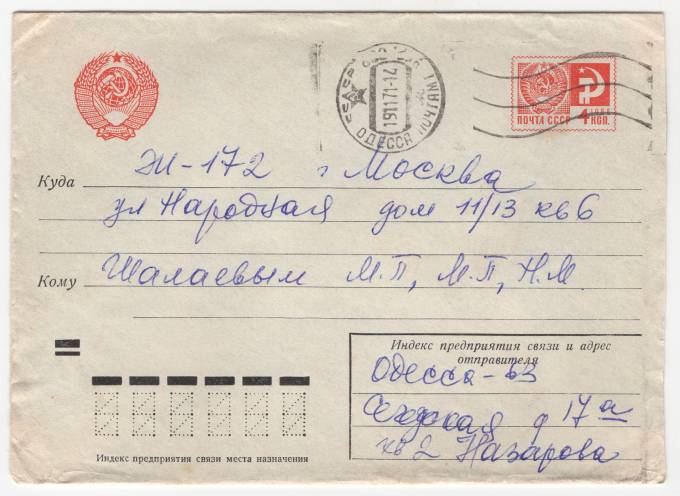 ПОЧТА СССР 4 КОП.
ОДЕССА
ПОЧТАМТ
Куда Ж-172 г Москва
ул Народная дом 11/13 кв 6
Кому Шалаевым М.П, М.П, Н.М.
Индекс предприятия связи и адрес
отправителя
Одесса-63
д 17а
кв 2 Назарова
Индекс предприятия связи места назначения